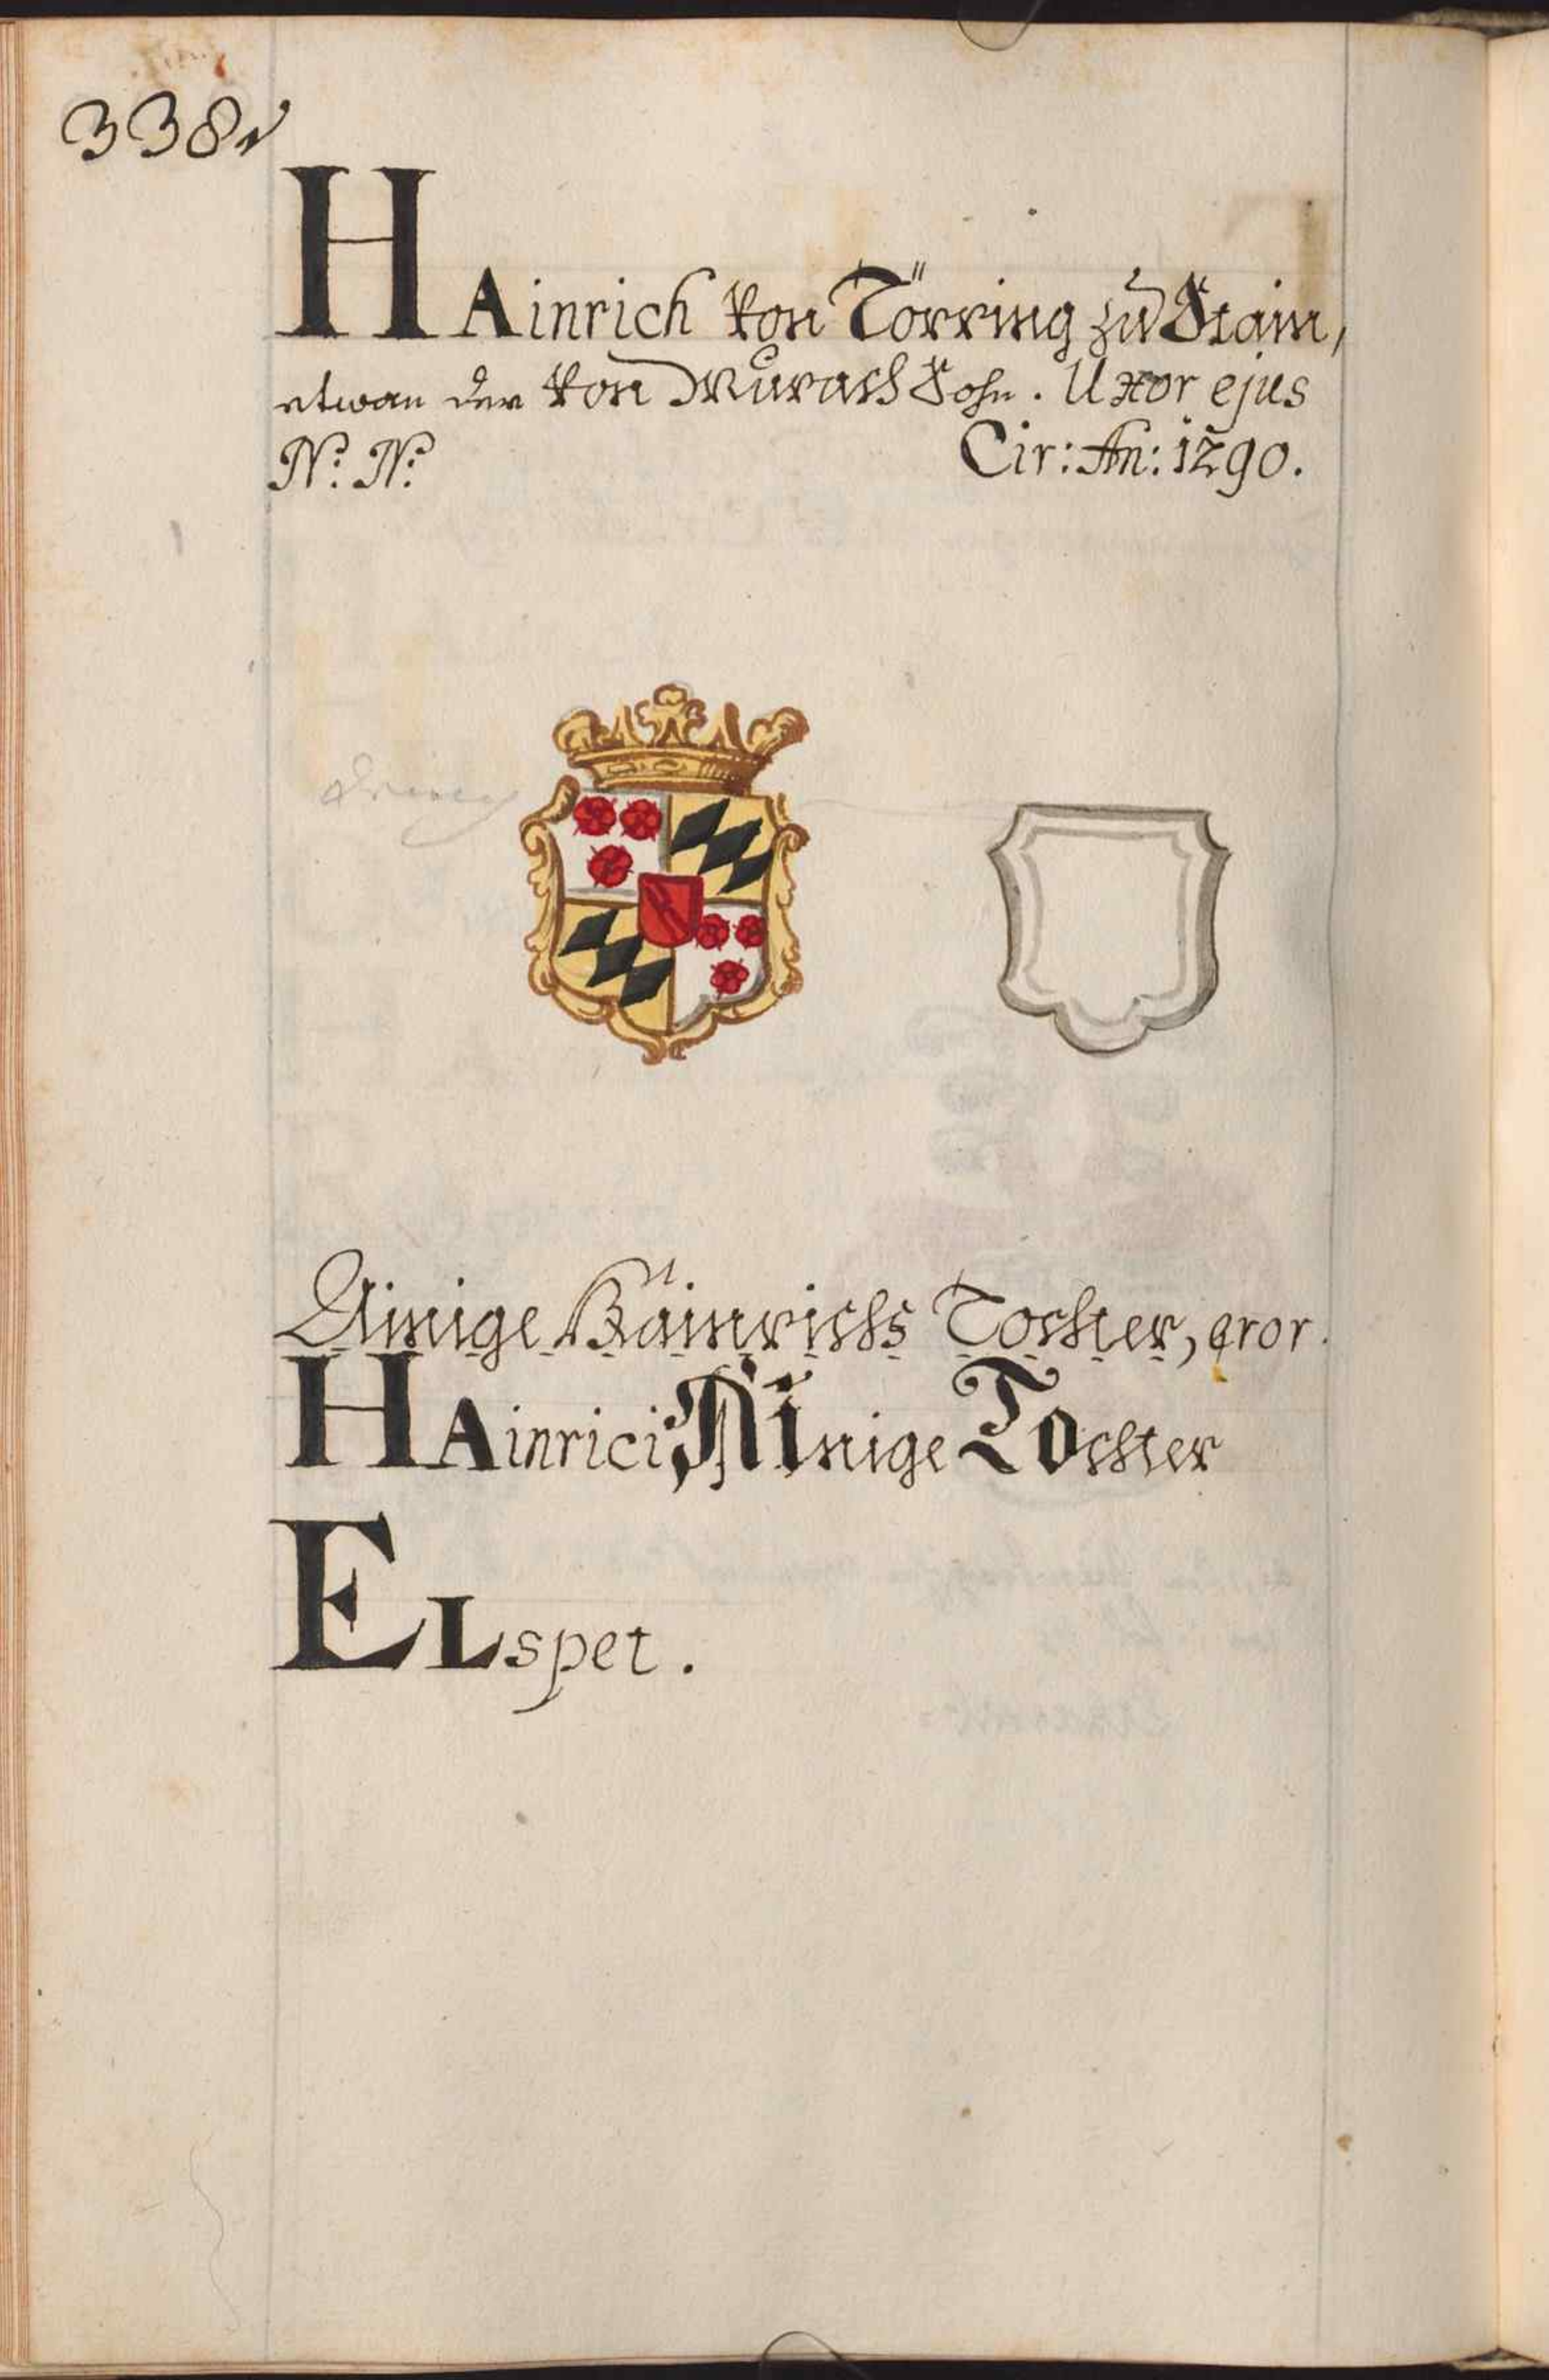 338
HAinrich von Törring zu Stain,
etwan der von Murach Sohn. Uxor ejus
N: N: Cir: An: 1290.
Ainige Hainrichs Tochter, error.
HAinrici AInige TOchter
ELspet.